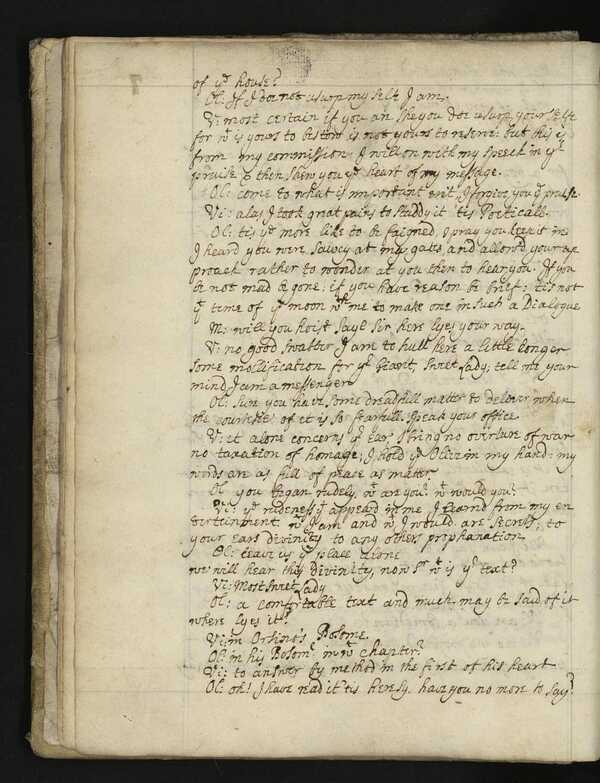 of ye house?
Ol: If I doe not usurp my self I am.
Vi: most certain if you are she you doe usurp your self
for wt is yours to bestow is not yours to reserve: but this is
from my commission, I will on with my speech in yr
praise & then shew you ye heart of my message.
Ol: come to what is important in it, I forgive you ye praise.
Vi: alas I took great pains to studdy it & tis Poeticall.
Ol: tis ye more like to be faigned, I pray you keep it in
I heard you were sawcy at my gates, and allow'd your ap
proach rather to wonder at you then to hear you. If you
be not mad be gone; if you have reason be brief; tis not
yt time of ye moon wth me to make one in such a Dialogue
M: will you hoist sayl Sir here lyes your way.
V: no good swabber I am to hull here a little longer
some mollification for yr Giant, sweet Lady; tell me your
mind, I am a messenger
Ol: sure you have some dreadfull matter to deliver when
the courtesie of it is so fearfull. speak your office
V: it alone concerns yr Ear, I bring no overture of war
no taxation of homage; I hold ye Olive in my hand: my
words are as full of peace as matter
Ol: you began rudely, wt are you? wt would you?
Vi: ye rudeness yt appeard in me I learnd from my en
tertainment, wt I am and wt I would are secrets; to
your Ears divinity to any others prophanation
Ol: leave us ye place alone
we will hear this divinity, now Sr wt is yr text?
Vi: Most sweet Lady
Ol: a comfortable text and much may be said of it
where lyes it?
Vi: in Orsino's Bosome
Ol: in his Bosom? in wt chapter?
Vi: to answer by method in the first of his heart
Ol: oh! I have read it tis heresy. have you no more to say?